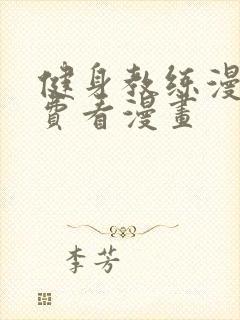 健身教练漫
費看漫畫
李芳